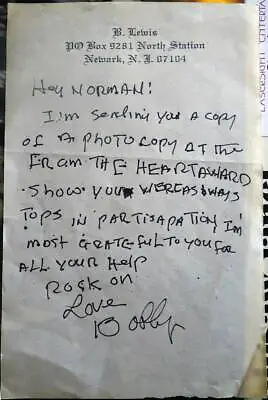 B. Lewis
PO Box 9281 North Station
Newark, N. J. 07104
Hey NORMAN!
I'm sending you a copy
of a PHOTO COPY at the
FROM THE HEART AWARD
SHOW YOU WERE AS WAYS
TOPS IN PARTISAPATION I'm
MOST GRATEFUL TO YOU FOR
ALL YOUR HELP
ROCK ON
Love
Bobby
LASERSIGHT ENTERTA